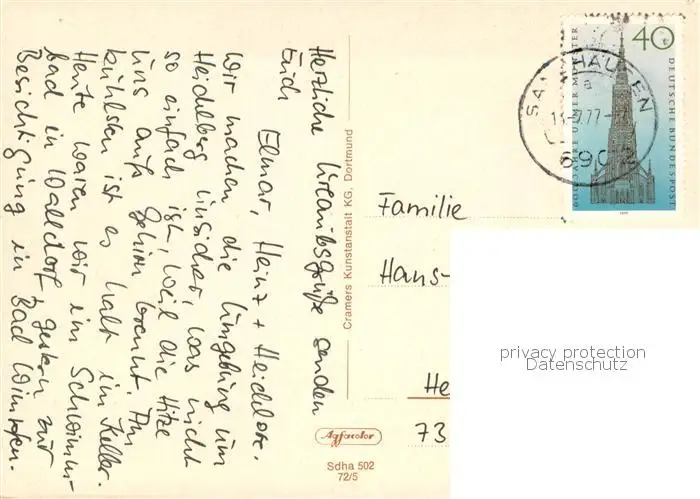 Herzliche Urlaubsgrüße senden
Euch
Elmar, Heinz + Heidelore.
Wir machen die Umgebung um
Heidelberg unsicher, was nicht
so einfach ist, weil die Hitze
uns aufs Gehirn brennt. Am
kühlsten ist es halt im Keller.
Heute waren wir im Schwimm-
bad in Walldorf, gestern zur
Besichtigung in Bad Wimpfen.
Cramers Kunstanstalt KG, Dortmund
Agfacolor
Sdha 502
72/5
Familie
Hans-
He
73
40
DEUTSCHE BUNDESPOST
600 JAHRE ULMER MÜNSTER
SANDHAUSEN
a
77
6902
privacy protection
Datenschutz